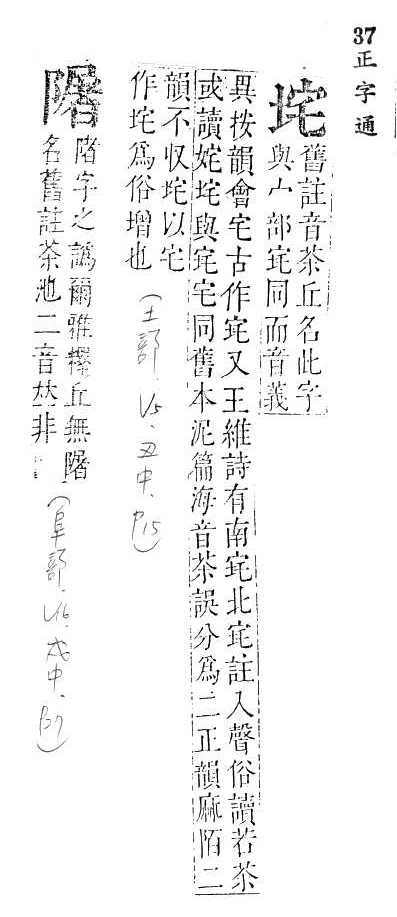 37 正字通
垞
舊註音茶丘名此字
與宀部㡯同而音義
異按韻會宅古作㡯又王維詩有南㡯北㡯註入聲俗讀若茶
或讀㛊垞與㡯宅同舊本泥篇海音茶誤分爲二正韻麻陌二
韻不収垞以宅
作垞爲俗增也
(土部, V5, 丑中, P15)
䧜
階字之譌爾雅釋丘無䧜
名舊註茶池二音𠀤非
(阜部, V16, 戌中, P37)